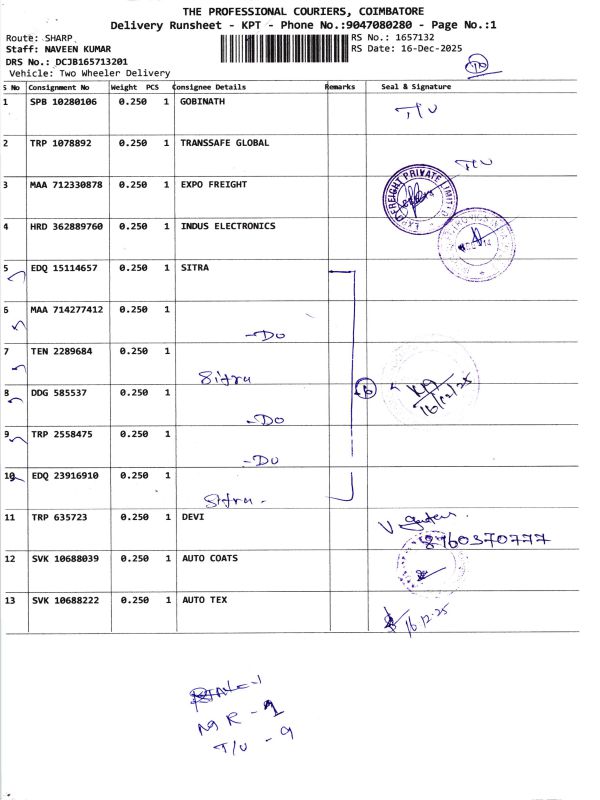 THE PROFESSIONAL COURIERS, COIMBATORE
Delivery Runsheet - KPT - Phone No.:9047080280 - Page No.:1
Route: SHARP RS No.: 1657132
Staff: NAVEEN KUMAR RS Date: 16-Dec-2025
DRS No.: DCJB165713201
Vehicle: Two Wheeler Delivery
S No Consignment No Weight PCS Consignee Details Remarks Seal & Signature
1 SPB 10280106 0.250 1 GOBINATH T/U
2 TRP 1078892 0.250 1 TRANSSAFE GLOBAL T/U
3 MAA 712330878 0.250 1 EXPO FREIGHT FREIGHT PRIVATE LIMITED
4 HRD 362889760 0.250 1 INDUS ELECTRONICS
5 EDQ 15114657 0.250 1 SITRA
6 MAA 714277412 0.250 1 -Do
7 TEN 2289684 0.250 1 Sitra
8 DDG 585537 0.250 1 -Do 6 16/12/25
9 TRP 2558475 0.250 1 -Do
10 EDQ 23916910 0.250 1 Sitra -
11 TRP 635723 0.250 1 DEVI 8760370777
12 SVK 10688039 0.250 1 AUTO COATS
13 SVK 10688222 0.250 1 AUTO TEX 16.12.25
NR - 1
T/U - 9